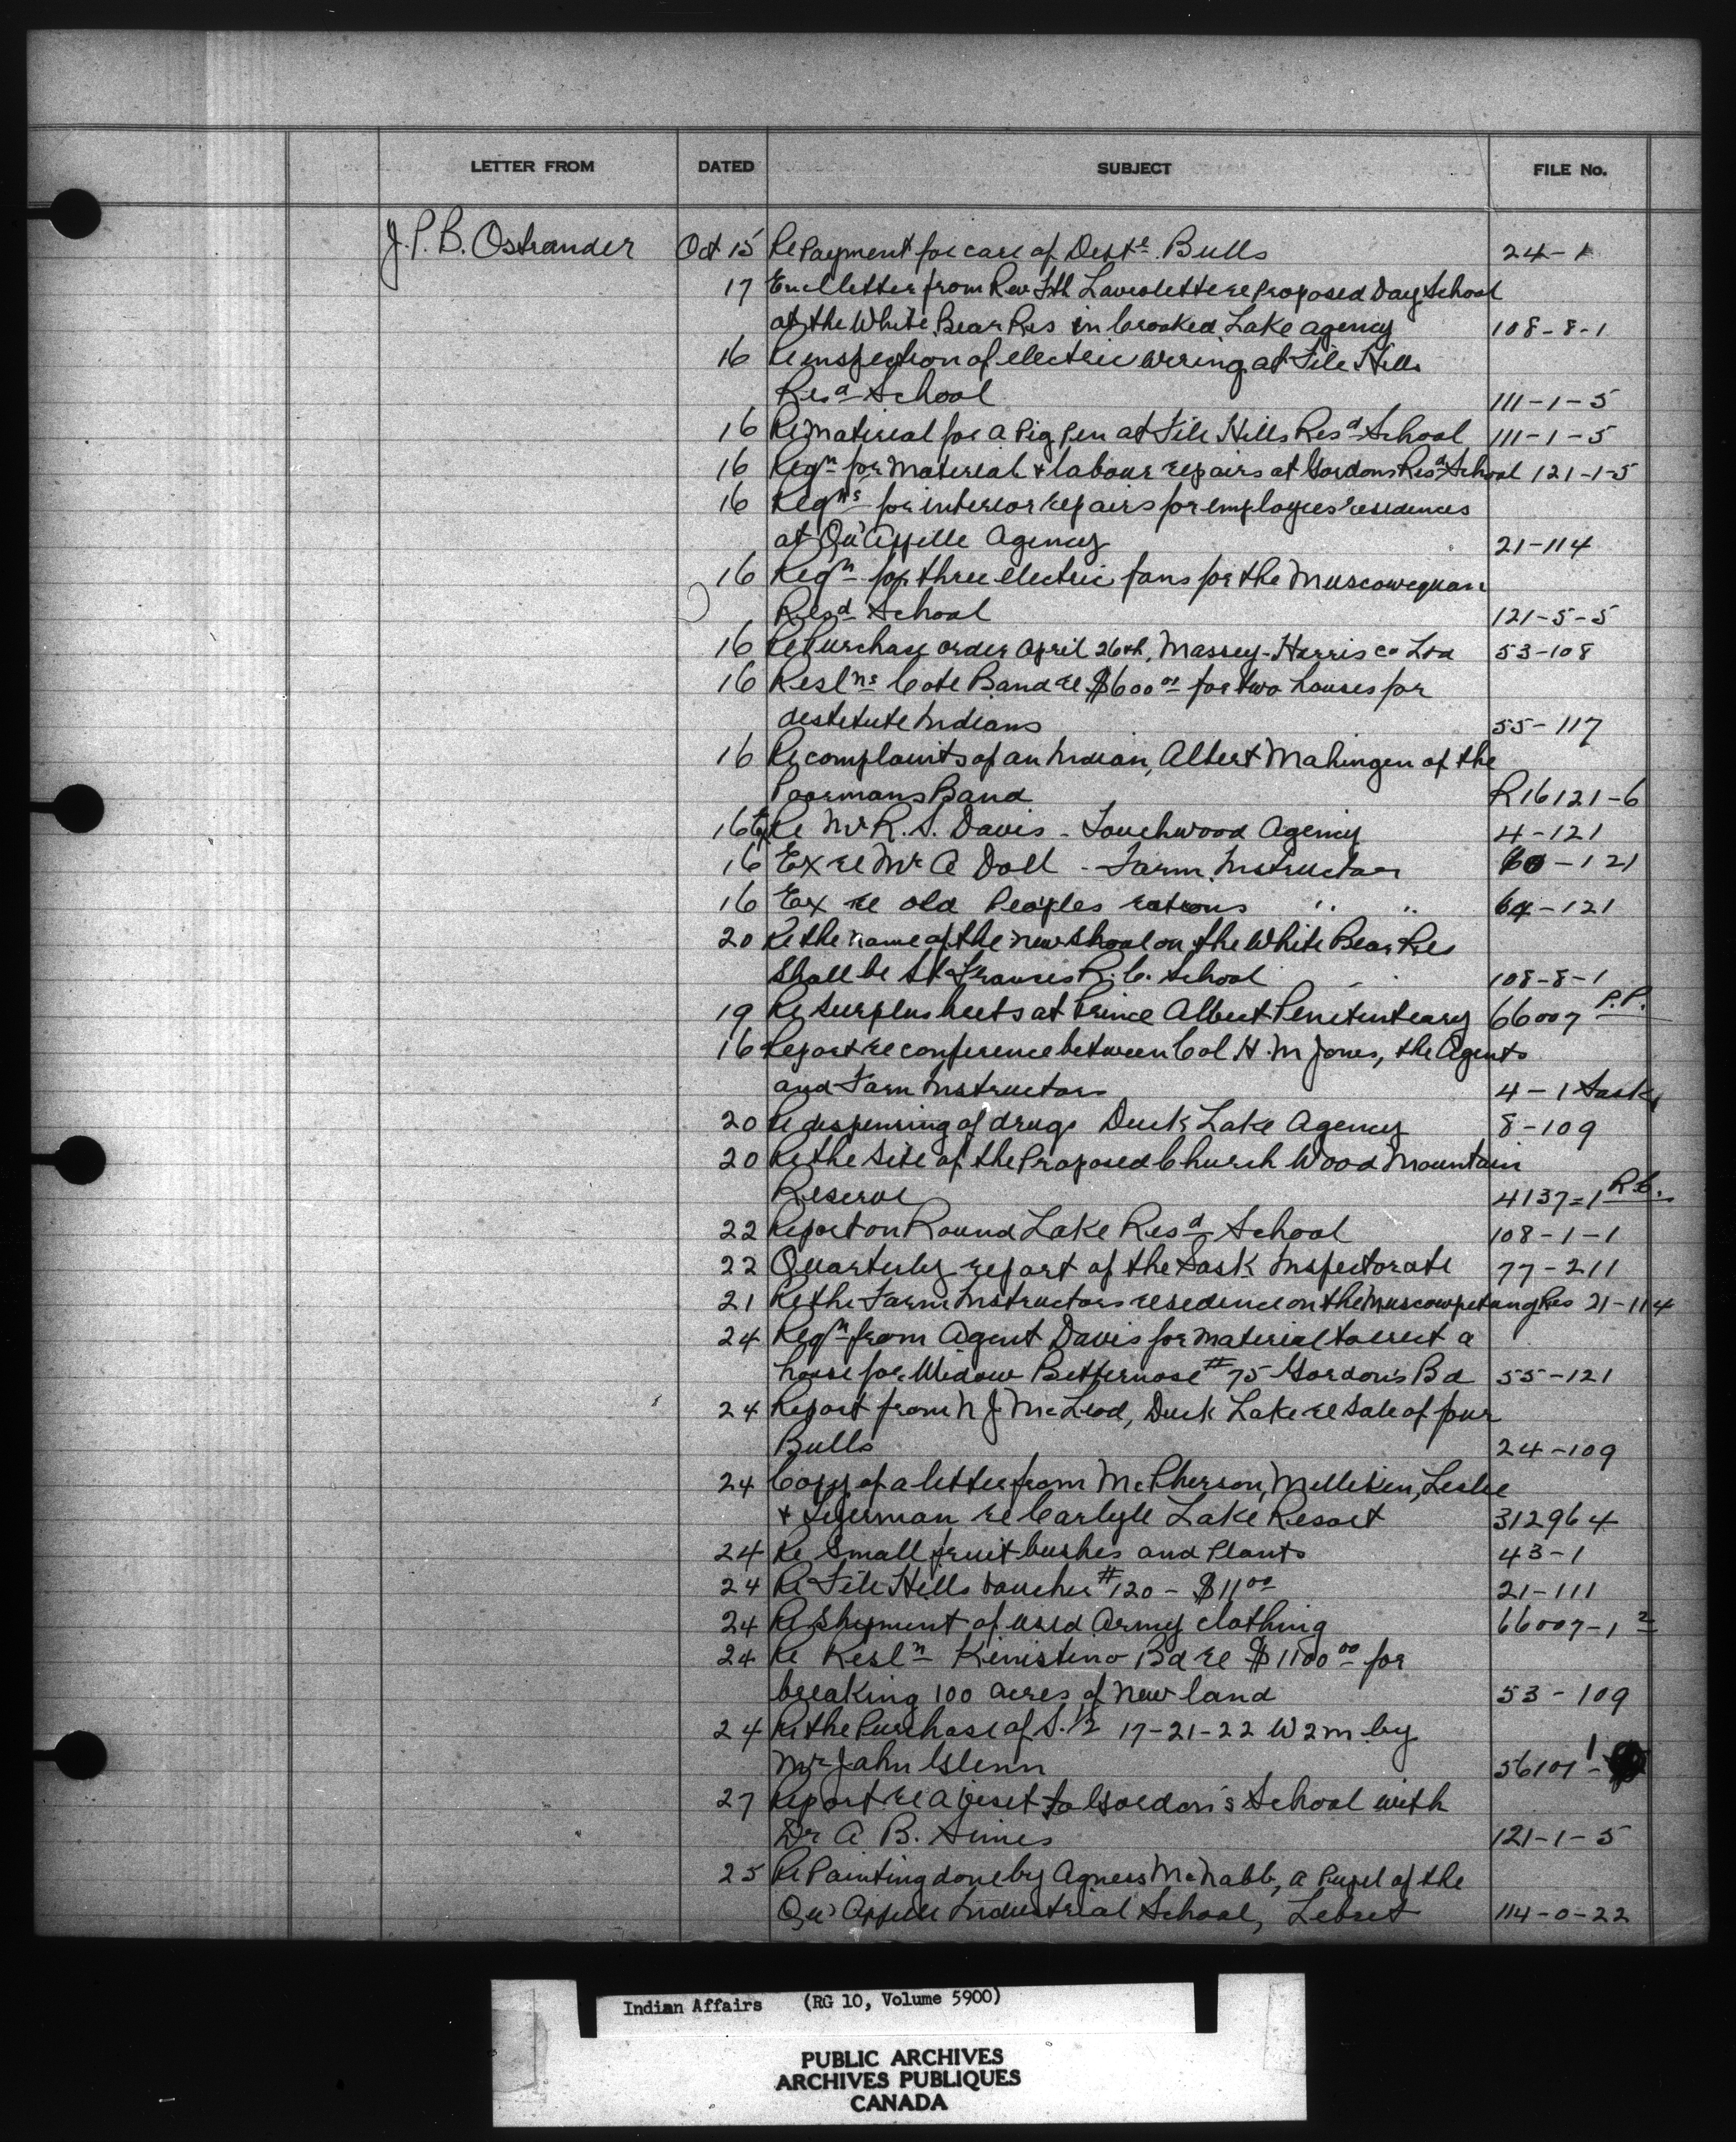 LETTER FROM DATED SUBJECT FILE No.
J. P. B. Ostrander Oct 15 Re Payment for care of Deptl. Bulls 24-1
17 Encl letter from Rev Fth Laviolette re Proposed Day School
at the White Bear Res in Crooked Lake Agency 108-8-1
16 Re inspection of electric wiring at File Hills
Resd School 111-1-5
16 Re Material for a Pig Pen at File Hills Resd School 111-1-5
16 Reqn for Material & labour repairs at Gordons Resd School 121-1-5
16 Reqns for interior repairs for employees residences
at Qu'Appelle Agency 21-114
16 Reqn for three electric fans for the Muscowequan
Resd School 121-5-5
16 Re Purchase order April 26th, Massey-Harris Co Ltd 53-108
16 Reslns Cote Band re $600 00 for two houses for
destitute Indians 55-117
16 Re complaints of an Indian, Albert Mahingen of the
Poormans Band R16121-6
16 Ex Re Mr R. S. Davis - Touchwood Agency 4-121
16 Ex re Mr A Doll - Farm Instructor 60-121
16 Ex re old Peoples rations " " 64-121
20 Re the name of the new Shool on the White Bear Res
Shall be St. Frances R.C. School 108-8-1
19 Re Surplus beets at Prince Albert Penitentiary 66007 P.P.
16 Report re conference between Col H. M Jones, the Agents
and Farm Instructors 4-1 Sask
20 Re dispensing of drugs Duck Lake Agency 8-109
20 Re the Site of the Proposed Church Wood Mountain
Reserve 4137=1 R.C.
22 Report on Round Lake Resd School 108-1-1
22 Quarterly report of the Sask Inspectorate 77-211
21 Re the Farm Instructors residence on the Muscowpetung Res 21-114
24 Reqn from Agent Davis for material to erect a
house for Widow Bitternose #75 Gordon's Bd 55-121
24 Report from N J McLeod, Duck Lake re Sale of four
Bulls 24-109
24 Copy of a letter from McPherson, Milliken, Leslie
& Tyerman re Carlyle Lake Resort 312964
24 Re Small fruit bushes and Plants 43-1
24 Re File Hills voucher #120 - $11 00 21-111
24 Re Shipment of used Army clothing 66007-1 2
24 Re Resln Kinistino Bd re $1100 00 for
breaking 100 acres of New land 53-109
24 Re the Purchase of S. 1/2 17-21-22 W2m by
Mr John Glenn 56101 1-
27 Report re a visit to Gordon's School with
Dr A B. Simes 121-1-5
25 Re Painting done by Agness McNabb, a Pupil of the
Qu'Appelle Industrial School, Lebret 114-0-22
Indian Affairs (RG 10, Volume 5900)
PUBLIC ARCHIVES
ARCHIVES PUBLIQUES
CANADA